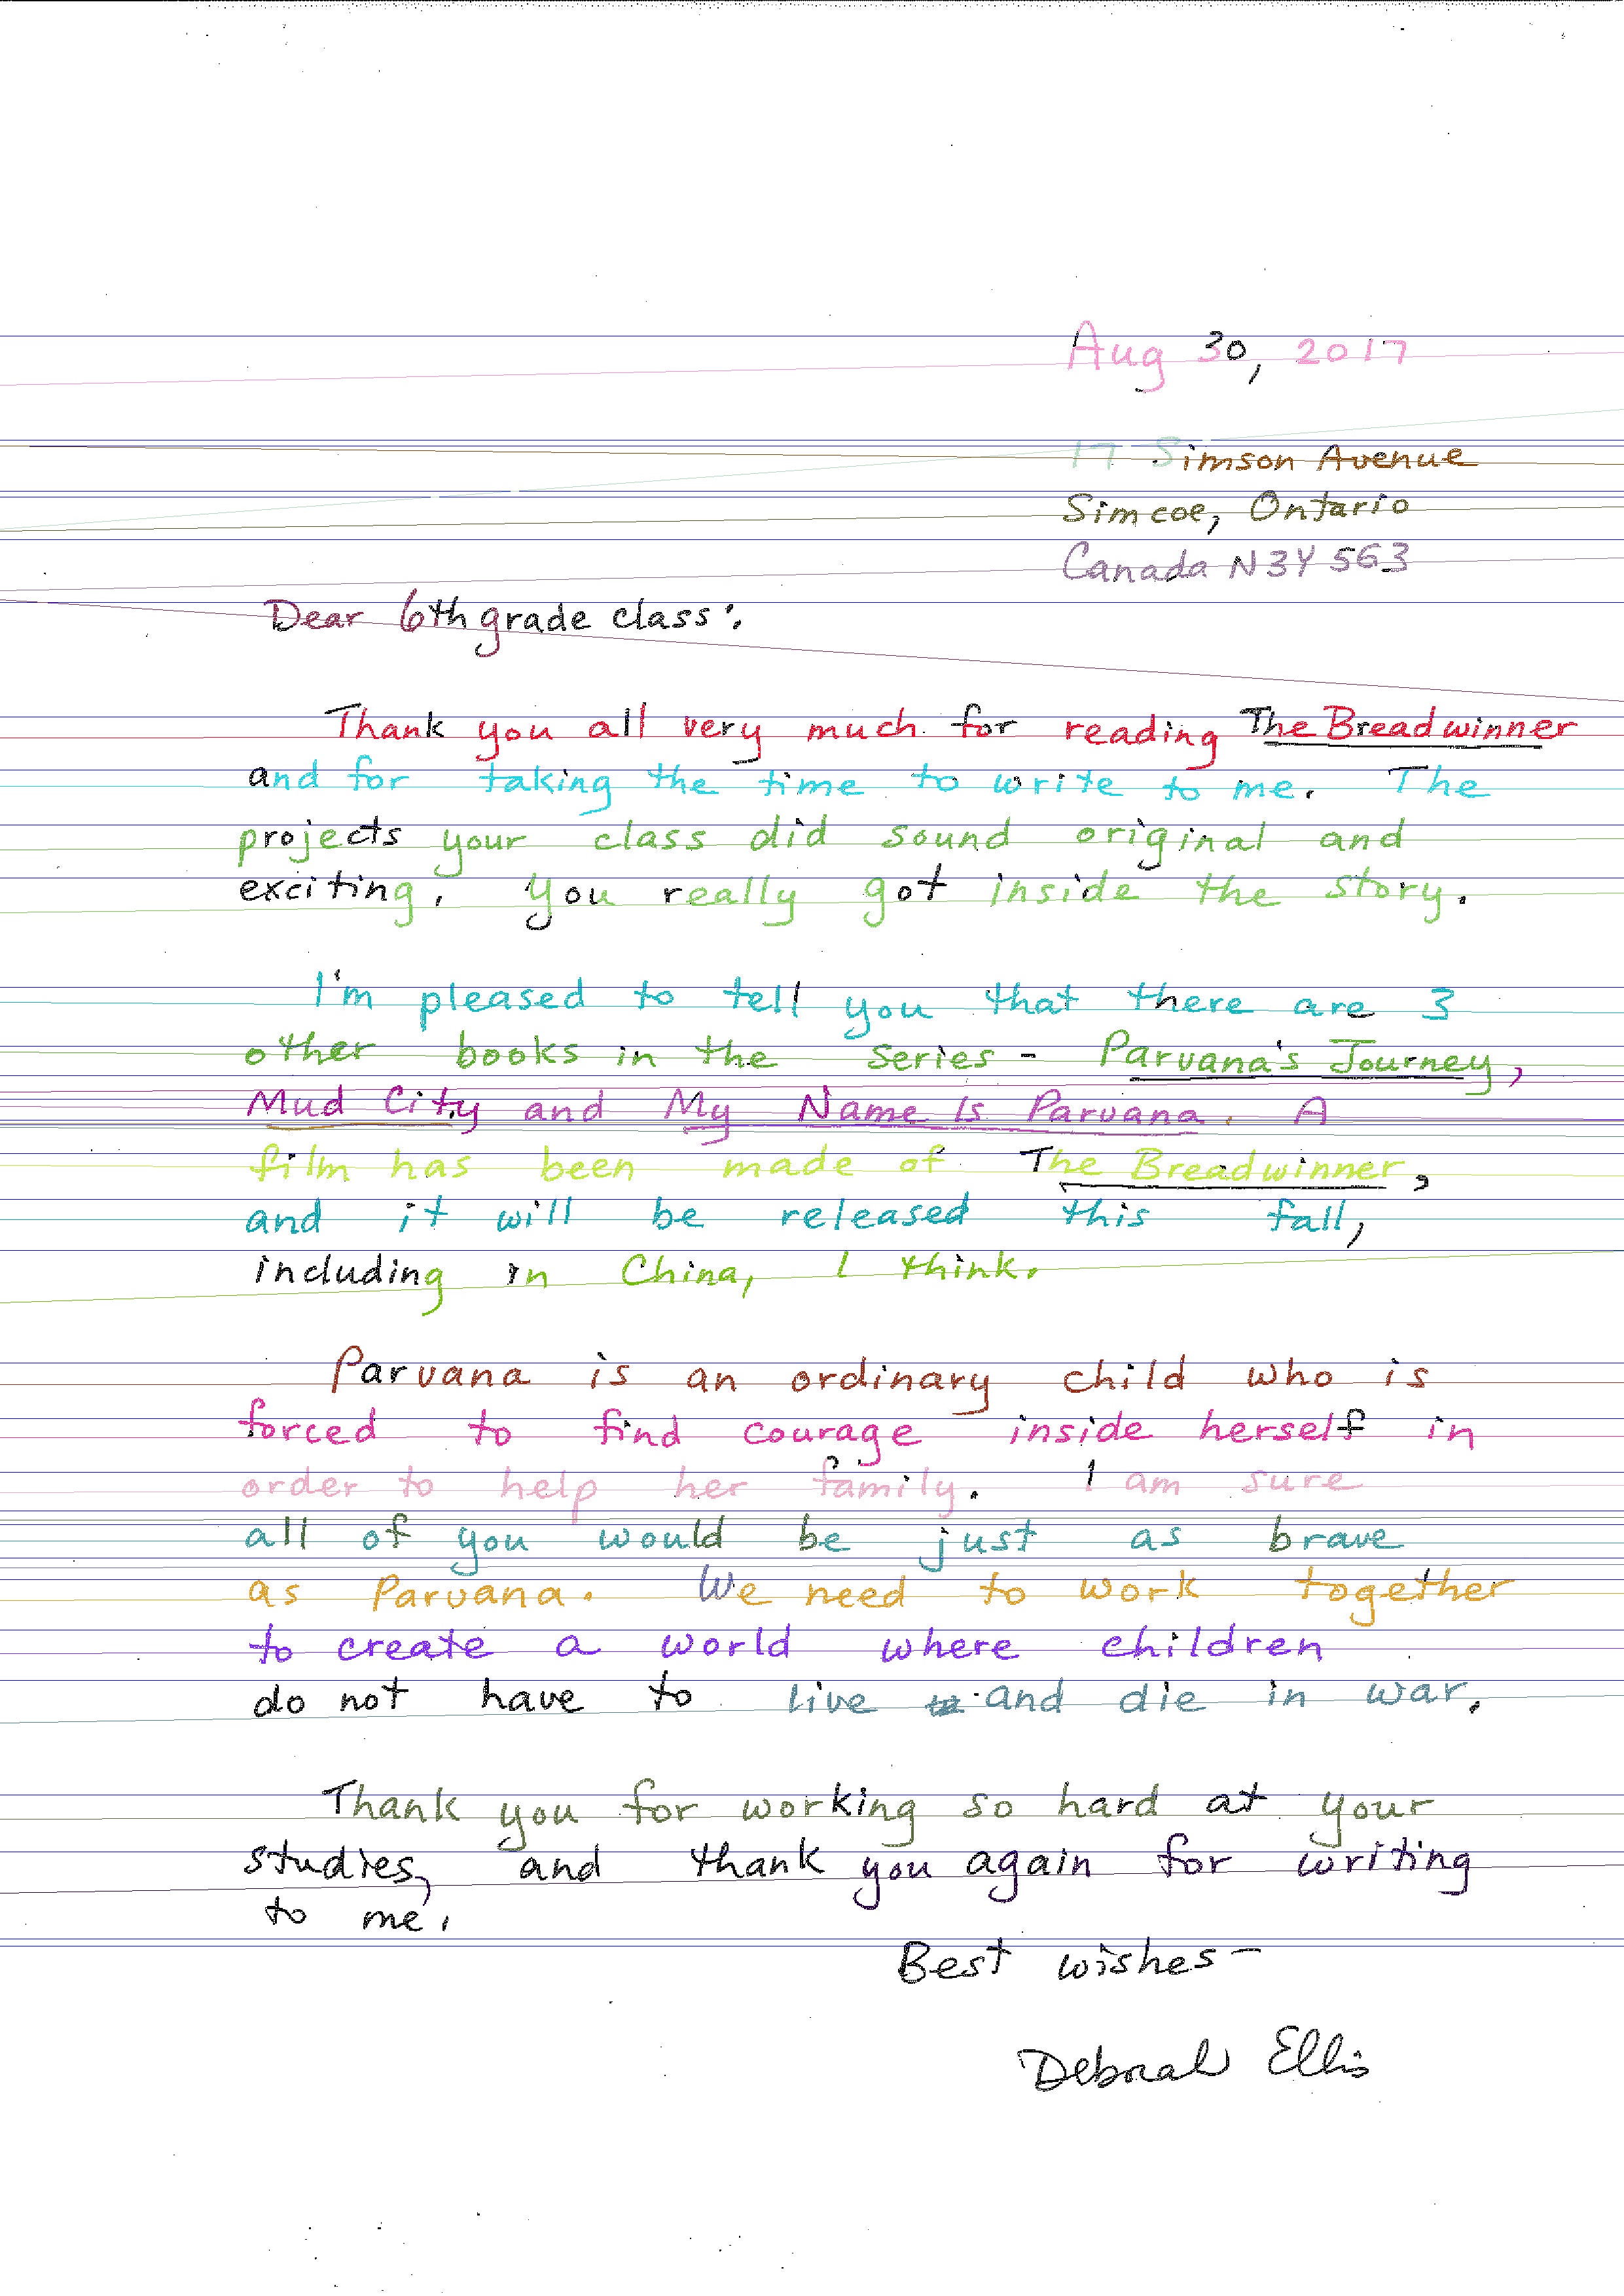 Aug 30, 2017
17 Simson Avenue
Simcoe, Ontario
Canada N3Y 5G3
Dear 6th grade class:
Thank you all very much for reading The Breadwinner
and for taking the time to write to me. The
projects your class did sound original and
exciting. You really got inside the story.
I'm pleased to tell you that there are 3
other books in the series - Parvana's Journey,
Mud City and My Name Is Parvana. A
film has been made of The Breadwinner,
and it will be released this fall,
including in China, I think.
Parvana is an ordinary child who is
forced to find courage inside herself in
order to help her family. I am sure
all of you would be just as brave
as Parvana. We need to work together
to create a world where children
do not have to live and die in war.
Thank you for working so hard at your
studies, and thank you again for writing
to me.
Best wishes -
Deborah Ellis